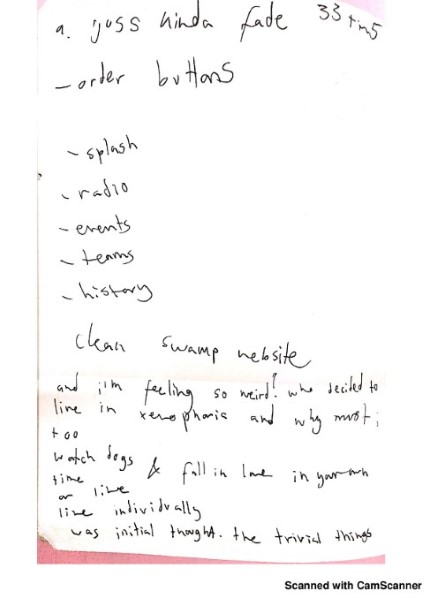 a. yuss kinda fade
- order buttons
- splash
- radio
- events
- teams
- history
clean swamp website
and i'm feeling so weird! who decided to
live in and why must i
too
watch dogs & fall in love in your own
time
or live
live individually
was initial thought. the trivial things
Scanned with CamScanner